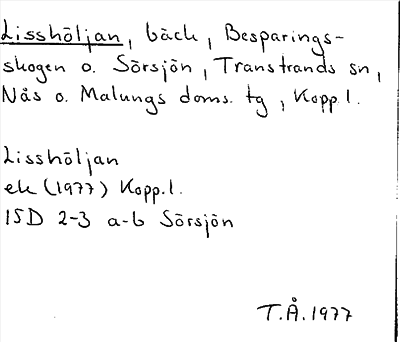 Lisshöljan, bäck, Besparings-
skogen o. Sörsjön, Transtrands sn,
Nås o. Malungs doms. tg, Kopp.l.
Lisshöljan
ek (1977) Kopp.l.
15D 2-3 a-b Sörsjön
T.Å.1977